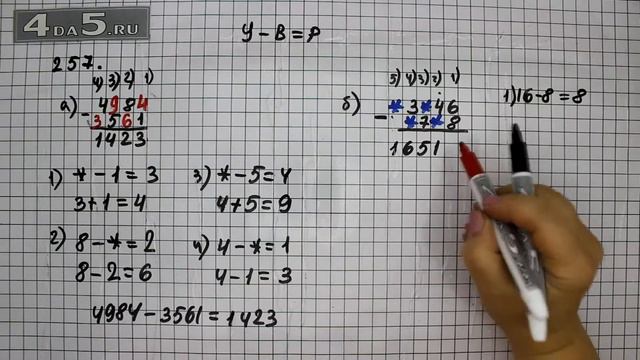 4DA5.RU
У – В = Р
257.
4) 3) 2) 1)
а) 4984
– 3561
1423
1) * – 1 = 3
3 + 1 = 4
2) 8 – * = 2
8 – 2 = 6
3) * – 5 = 4
4 + 5 = 9
4) 4 – * = 1
4 – 1 = 3
4984 – 3561 = 1423
5) 4) 3) 2) 1)
б) *3*46
– *7*8
1651
1) 16 – 8 = 8